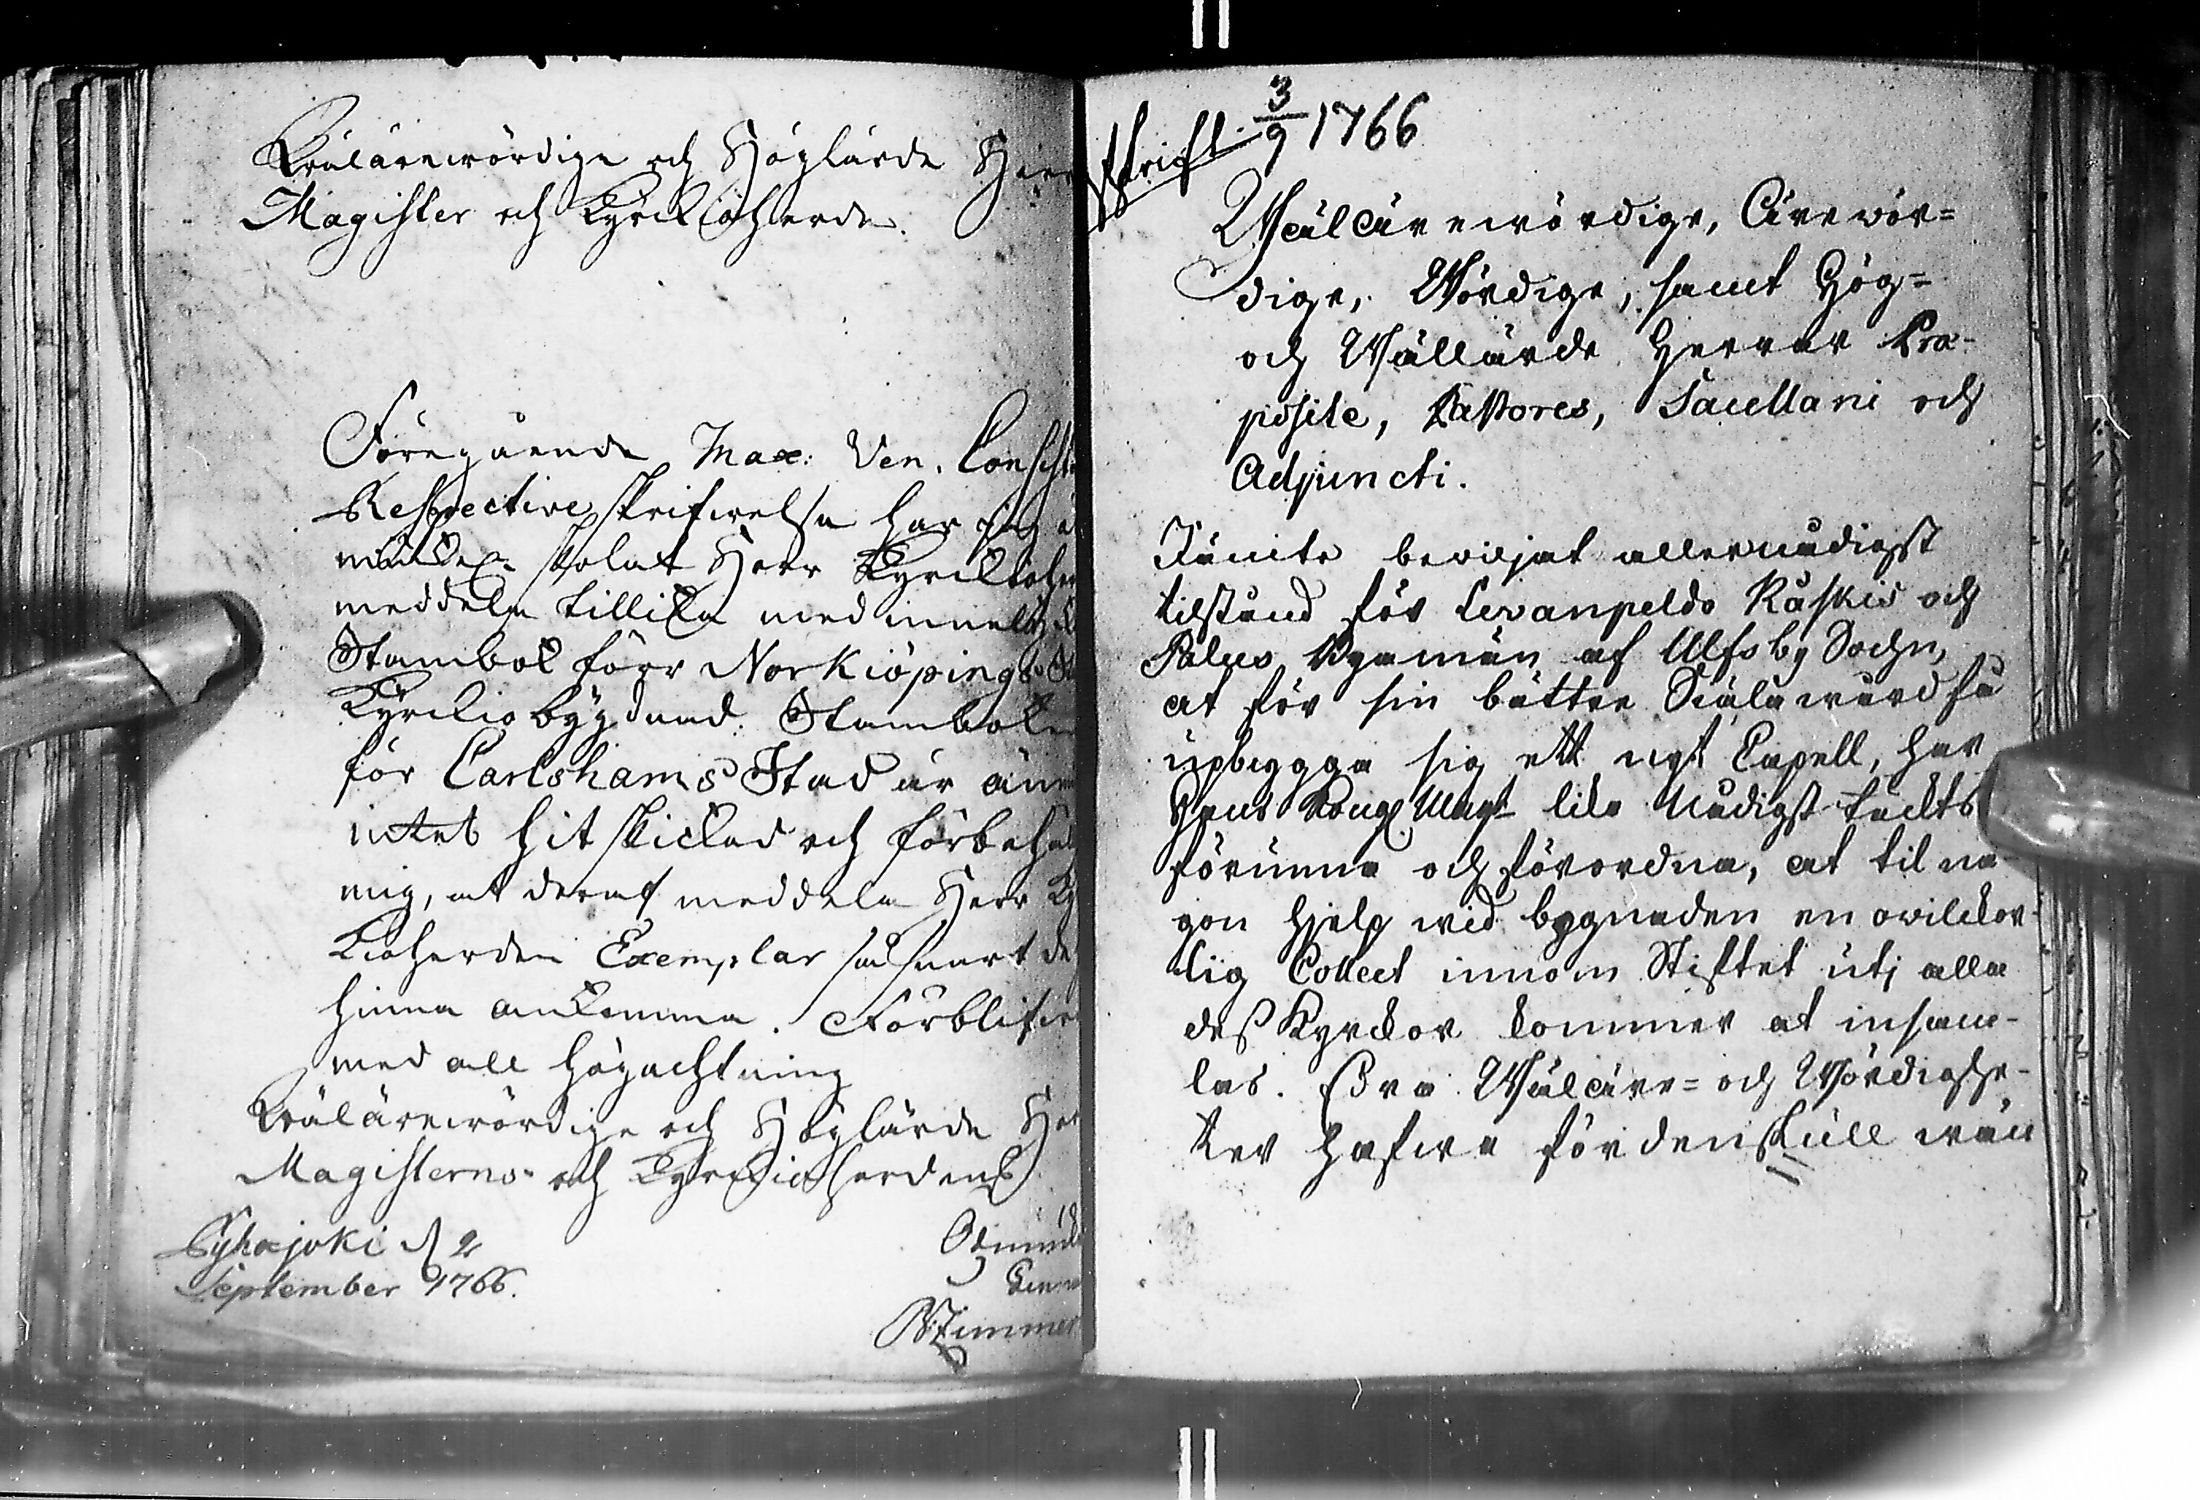 Wälärewördige och Höglärde Herr
Magister och Kyrckioherde.
Föregående Max: Ven. Consist
Respective skrifwelse har jag
skolat Herr Kyrckioher
meddela tillika med
Stambok förr Norkiöpings
Kyrckiobyggnad: Stamboken
för Carlshams Stad är än
intet hit skickad och förbehål
mig, at deraf meddela Herr Ky
kioherden Exemplar så snart de
hinna ankomma. Förblifwer
med all högachtning
Wälärewördige och Höglärde Her
Magisterns och Kyrckioherdens
Pyhajoki d 2
September 1766.
Ödmiuk
tienare
Zimmer
afskrift. 3/9 1766
Wälärewördige, Ärewör=
dige, Wördige, samt Hög=
och Wällärde Herrar Præ-
positi, Pastores, Sacellani och
Adjuncti.
Jämte bewiljat allernådigst
tilstånd för Levanpeldo Kåskis och
Palus Byamän af Ulfsby Sochn,
at för sin bättre Siälawård få
upbygga sig ett nyt Capell, har
Hans Kongl Mayt like Nådigst täckts
förunna och förordna, at til nå-
gon hjelp wid bygnaden en owilckor-
lig Collect innom Stiftet uti alla
dess Kyrckor kommer at insam-
las. Edra Wälärr= och Wördighe-
ter hafwa fördenskull wän